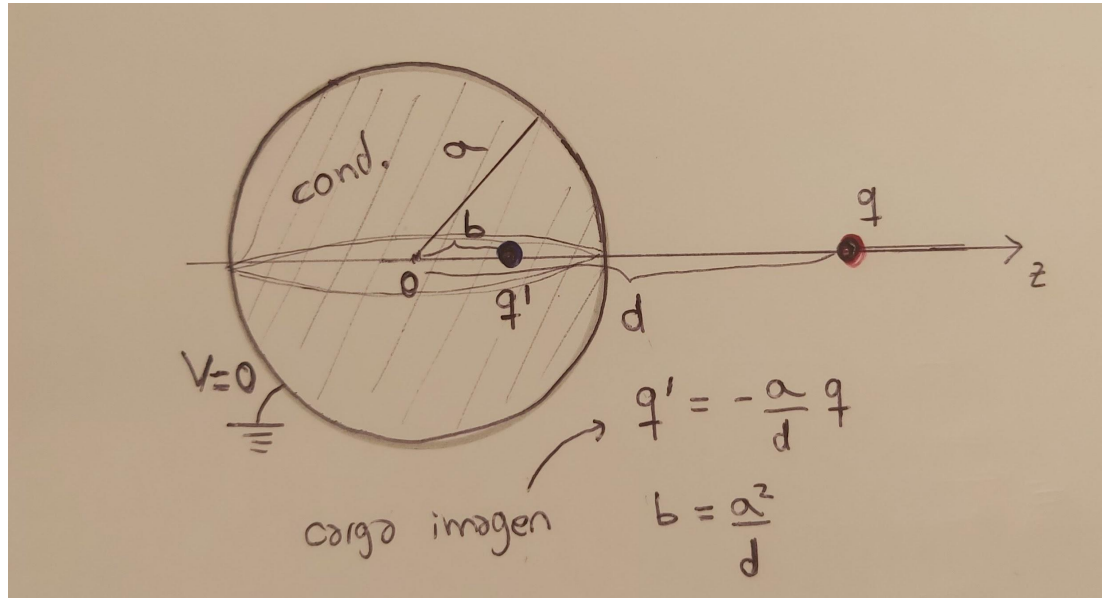 cond.
a
b
q
O
q'
z
d
V=0
q' = - a/d q
carga imagen
b = a²/d